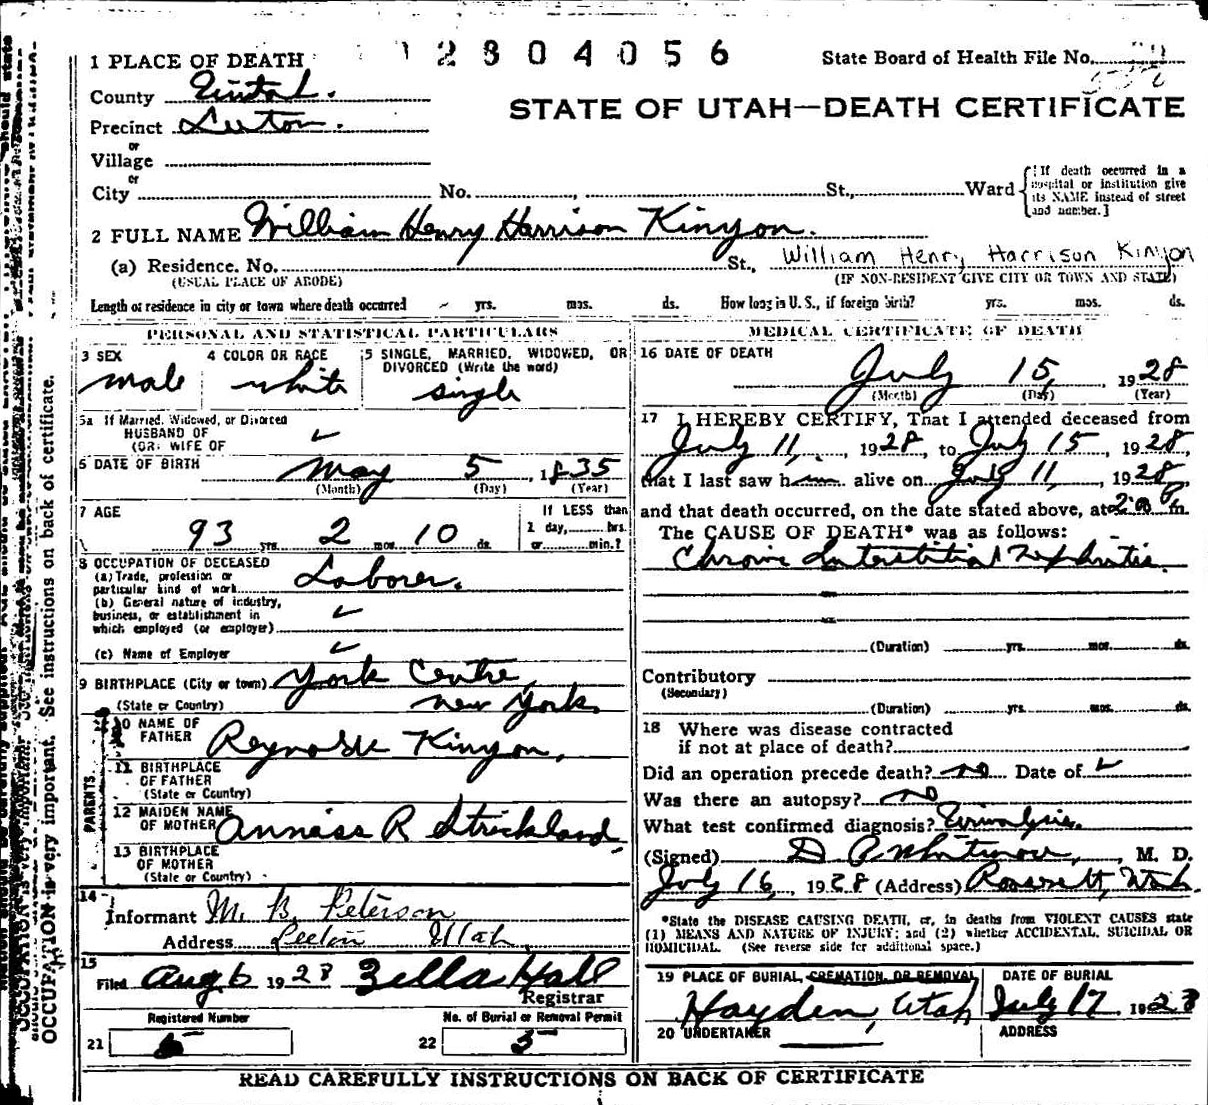 1 PLACE OF DEATH 12804056 State Board of Health File No.
County Uintah.
STATE OF UTAH—DEATH CERTIFICATE
Precinct Leeton.
or
Village
or
City No. , St., Ward
[If death occurred in a hospital or institution give its NAME instead of street and number.]
2 FULL NAME William Henry Harrison Kinyon.
(a) Residence. No. St., William Henry Harrison Kinyon
(USUAL PLACE OF ABODE) (IF NON-RESIDENT GIVE CITY OR TOWN AND STATE)
Length of residence in city or town where death occurred yrs. mos. ds. How long in U. S., if foreign birth? yrs. mos. ds.
PERSONAL AND STATISTICAL PARTICULARS
3 SEX 4 COLOR OR RACE 5 SINGLE, MARRIED, WIDOWED, OR DIVORCED (Write the word)
male white single
5a If Married, Widowed, or Divorced
HUSBAND OF
(OR) WIFE OF
6 DATE OF BIRTH May 5, 1835
(Month) (Day) (Year)
7 AGE If LESS than
93 yrs. 2 mos. 10 ds. 1 day, hrs.
or min.?
8 OCCUPATION OF DECEASED
(a) Trade, profession or
particular kind of work Laborer.
(b) General nature of industry,
business, or establishment in
which employed (or employer)
(c) Name of Employer
9 BIRTHPLACE (City or town) York Centre,
(State or Country) New York.
PARENTS
10 NAME OF FATHER Reynolds Kinyon,
11 BIRTHPLACE OF FATHER
(State or Country)
12 MAIDEN NAME OF MOTHER Anniss R Strickland,
13 BIRTHPLACE OF MOTHER
(State or Country)
14
Informant M. B. Peterson
Address Leeton Utah
15
Filed Aug 6 1928 Zella Hall
Registrar
Registered Number No. of Burial or Removal Permit
21 5 22 5
MEDICAL CERTIFICATE OF DEATH
16 DATE OF DEATH
July 15, 1928
(Month) (Day) (Year)
17 I HEREBY CERTIFY, That I attended deceased from
July 11, 1928, to July 15, 1928,
that I last saw him alive on July 11, 1928,
and that death occurred, on the date stated above, at m.
The CAUSE OF DEATH* was as follows:
Chronic Interstitial Nephritis.
(Duration) yrs. mos. ds.
Contributory
(Secondary)
(Duration) yrs. mos. ds.
18 Where was disease contracted
if not at place of death?
Did an operation precede death? no Date of
Was there an autopsy? no
What test confirmed diagnosis? Urinalysis.
(Signed) D P Whitmore, M. D.
July 16, 1928 (Address) Roosevelt, Utah.
*State the DISEASE CAUSING DEATH, or, in deaths from VIOLENT CAUSES state
(1) MEANS AND NATURE OF INJURY; and (2) whether ACCIDENTAL, SUICIDAL OR
HOMICIDAL. (See reverse side for additional space.)
19 PLACE OF BURIAL, CREMATION, OR REMOVAL DATE OF BURIAL
Hayden, Utah July 17 1928
20 UNDERTAKER ADDRESS
READ CAREFULLY INSTRUCTIONS ON BACK OF CERTIFICATE
OCCUPATION is very important. See instructions on back of certificate.